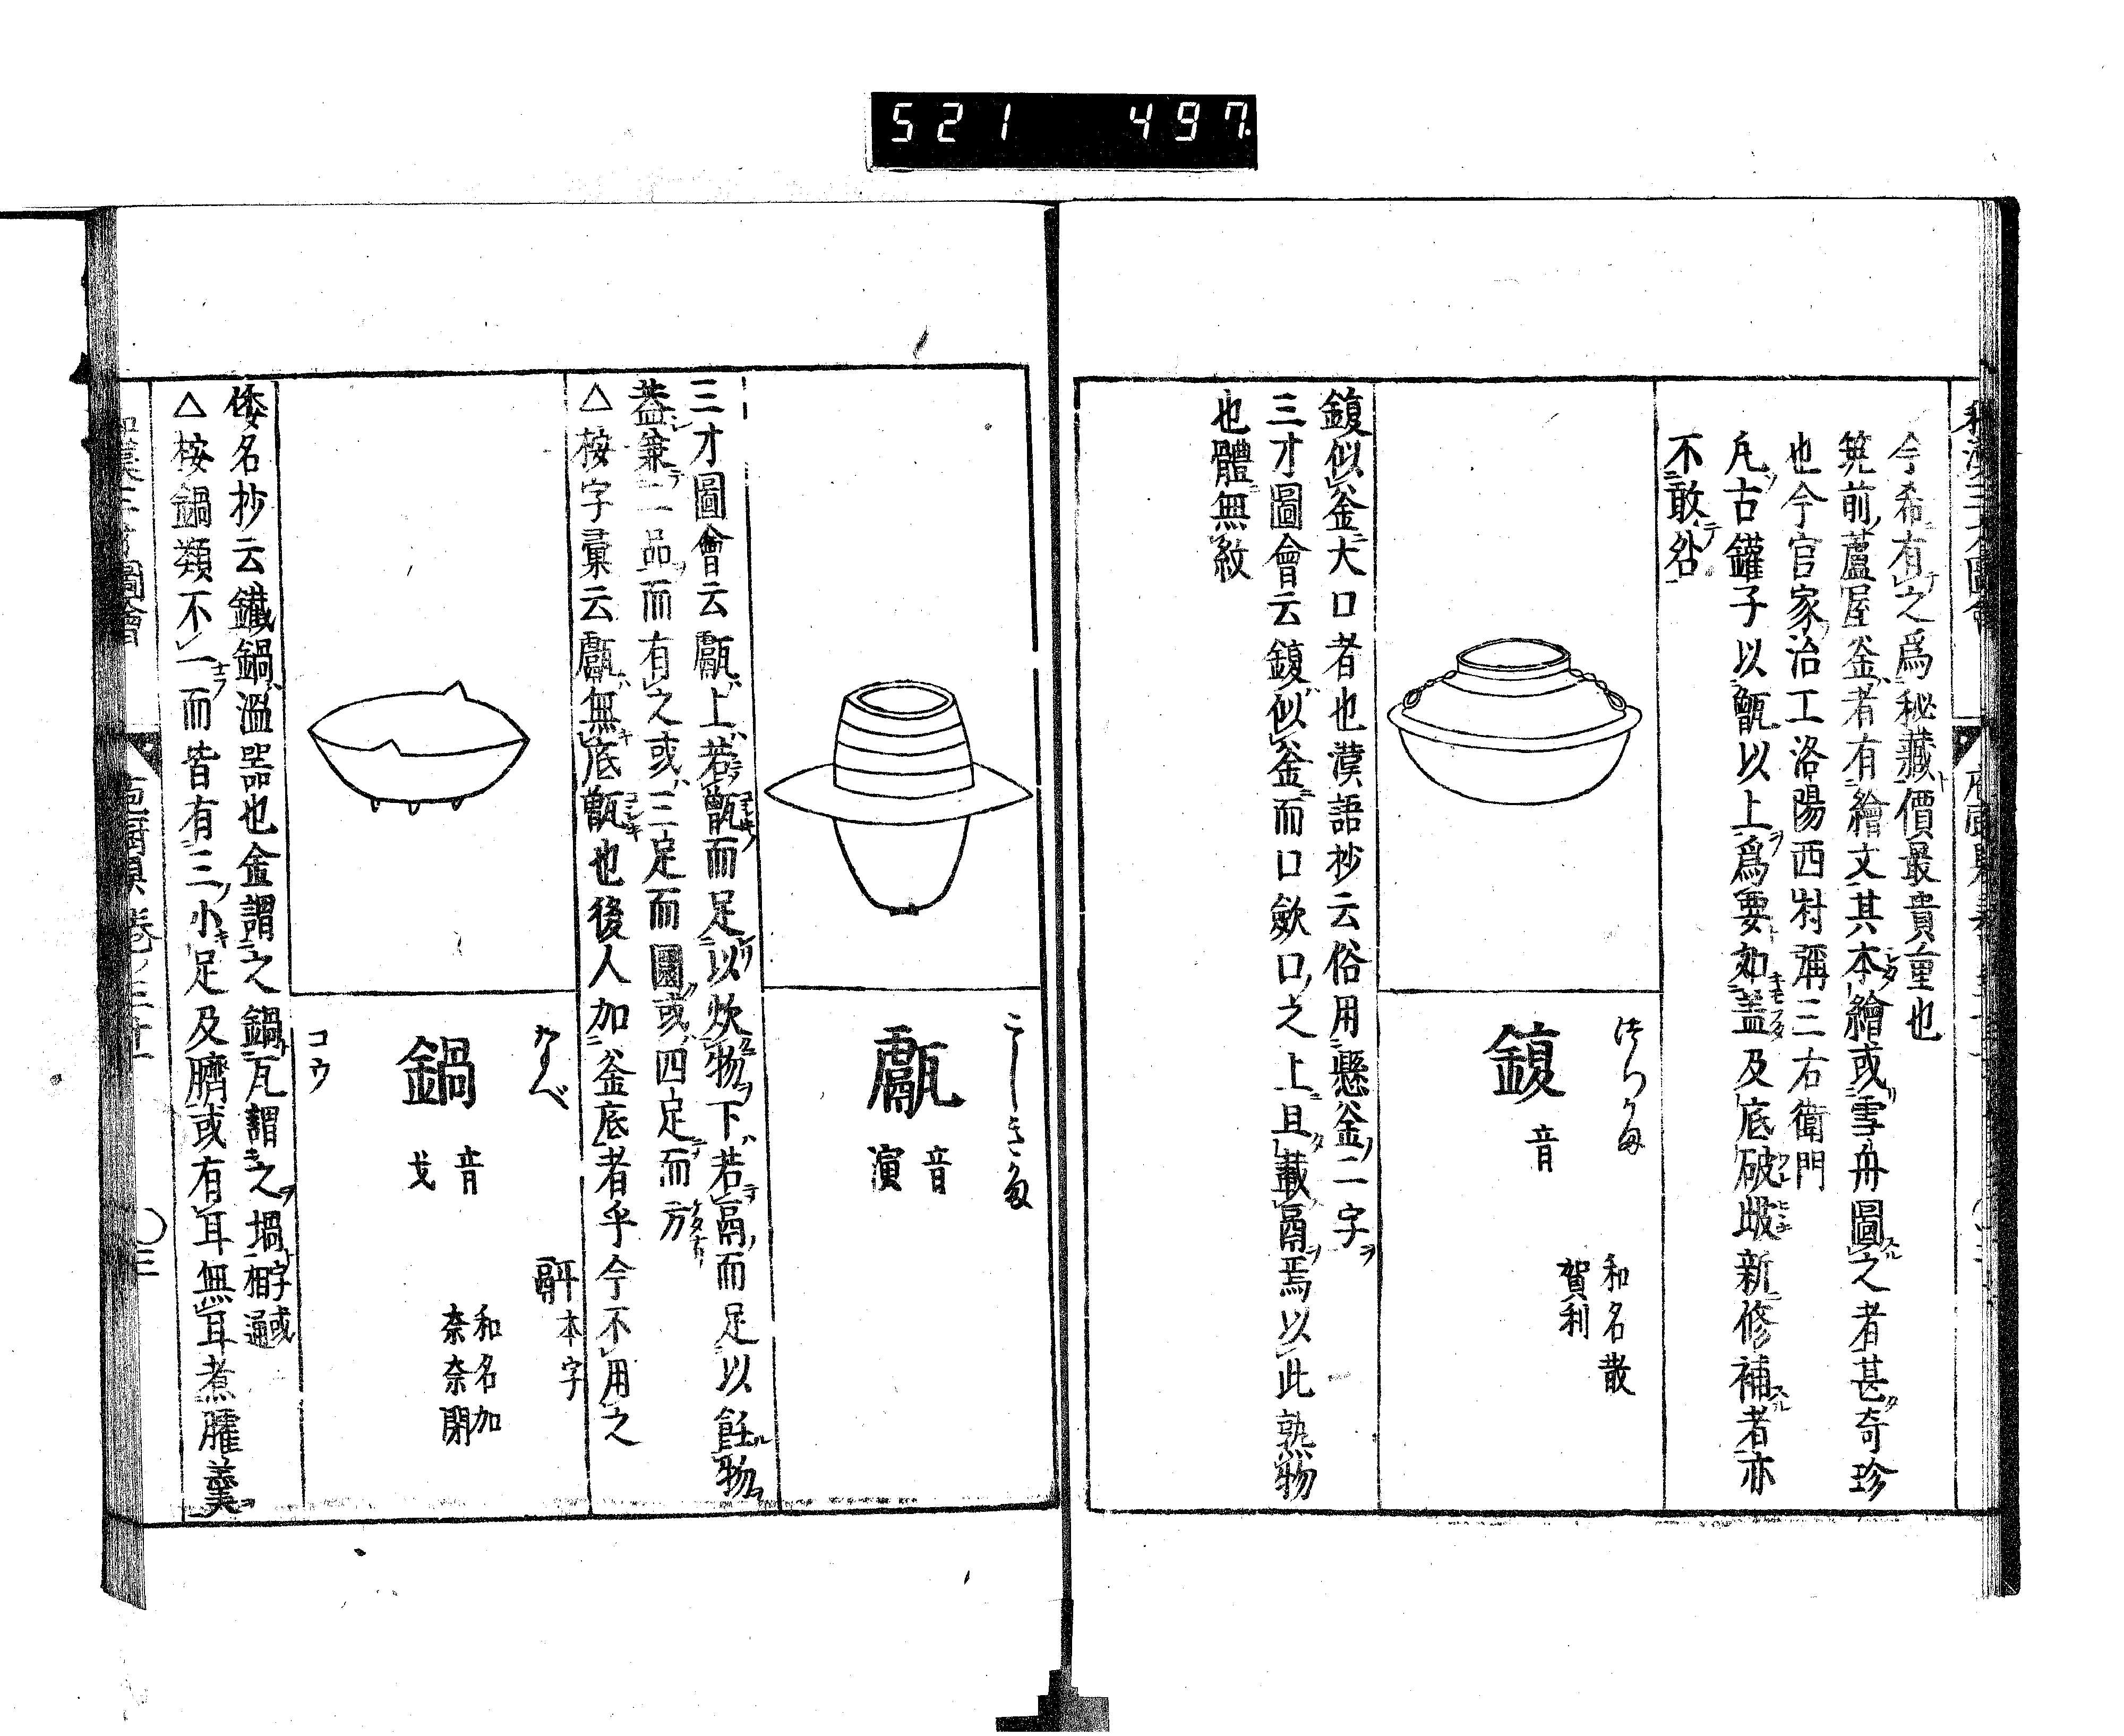 521 497.
今希有之爲秘藏價最貴重也
筑前蘆屋釜者有繪文其本繪或雪舟圖之者甚奇珍
也今官家治工洛陽西村彌三右衛門
凡古鑵子以甑以上爲要如蓋及底破𡿖新修補者亦
不敢咎
つりかま
鍑
音
和名散
賀利
鍑似釜大口者也漢語抄云俗用懸釜二字
三才圖會云鍑似釜而口歛口之上且載鬲焉以此熟物
也體無紋
こしきかま
甗
音
演
三才圖會云甗上若甑而足以炊物下若鬲而足以飪物
蓋兼二品而有之或三足而圓或四足而方
△桉字彙云甗無底甑也後人加釜底者乎今不用之
なべ
鍋
音
戈
本字
和名加
奈奈閉
コウ
倭名抄云鐵鍋溫器也金謂之鍋瓦謂之堝字或相通
△桉鍋類不一而皆有三小足及臍或有耳無耳煮臛羹
和漢三才圖會
庖厨具 卷ノ三十一
〇三